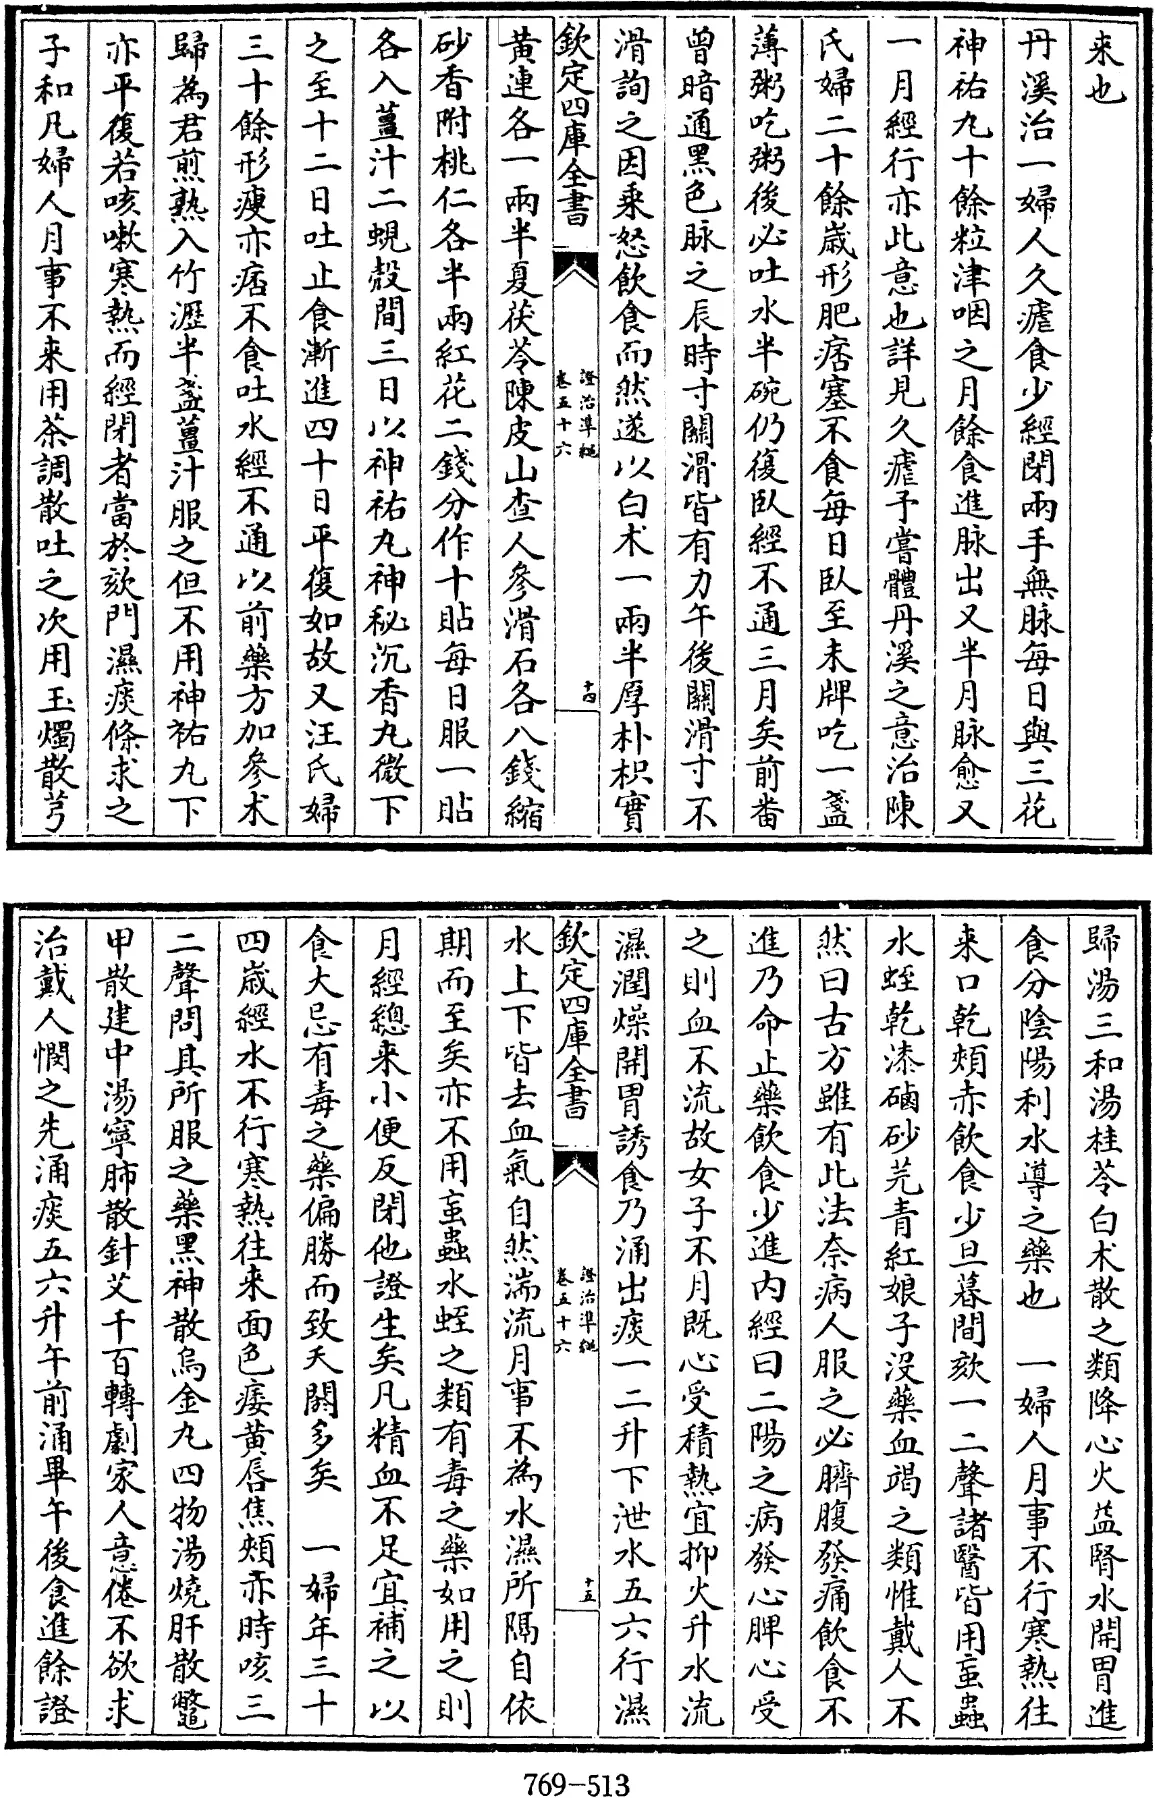 来也
丹溪治一婦人久瘧食少經閉兩手無脉每日與三花
神祐丸十餘粒津咽之月餘食進脉出又半月脉愈又
一月經行亦此意也詳見久瘧予嘗體丹溪之意治陳
氏婦二十餘歳形肥痞塞不食每日臥至未牌吃一盞
薄粥吃粥後必吐水半碗仍復臥經不通三月矣前畨
曽暗通黑色脉之辰時寸關滑皆有力午後關滑寸不
滑詢之因乘怒飲食而然遂以白术一兩半厚朴枳實
欽定四庫全書
證治凖䋲
卷五十六
十四
黃連各一兩半夏茯苓陳皮山查人參滑石各八錢縮
砂香附桃仁各半兩紅花二錢分作十貼每日服一貼
各入薑汁二蜆殼間三日以神祐丸神秘沉香丸微下
之至十二日吐止食漸進四十日平復如故又汪氏婦
三十餘形瘦亦痞不食吐水經不通以前藥方加參术
歸為君煎熟入竹瀝半盞薑汁服之但不用神祐丸下
亦平復若咳嗽寒熱而經閉者當於欬門濕痰條求之
子和凡婦人月事不來用茶調散吐之次用玉燭散芎
歸湯三和湯桂苓白术散之類降心火益腎水開胃進
食分陰陽利水導之藥也　一婦人月事不行寒熱往
来口乾頰赤飲食少旦暮間欬一二聲諸醫皆用䖟蟲
水蛭乾漆硇砂芫青紅娘子沒藥血竭之類惟戴人不
然曰古方雖有此法奈病人服之必臍腹發痛飲食不
進乃命止藥飲食少進内經曰二陽之病發心脾心受
之則血不流故女子不月既心受積熱宜抑火升水流
濕潤燥開胃誘食乃涌出痰一二升下泄水五六行濕
欽定四庫全書
證治凖䋲
卷五十六
十五
水上下皆去血氣自然湍流月事不為水濕所隔自依
期而至矣亦不用䖟蟲水蛭之類有毒之藥如用之則
月經總來小便反閉他證生矣凡精血不足宜補之以
食大忌有毒之藥偏勝而致夭閼多矣　一婦年三十
四歳經水不行寒熱往来面色痿黄唇焦頰赤時咳三
二聲問其所服之藥黑神散烏金丸四物湯燒肝散鼈
甲散建中湯寧肺散針艾千百轉劇家人意倦不欲求
治戴人憫之先涌痰五六升午前涌畢午後食進餘證
769-513